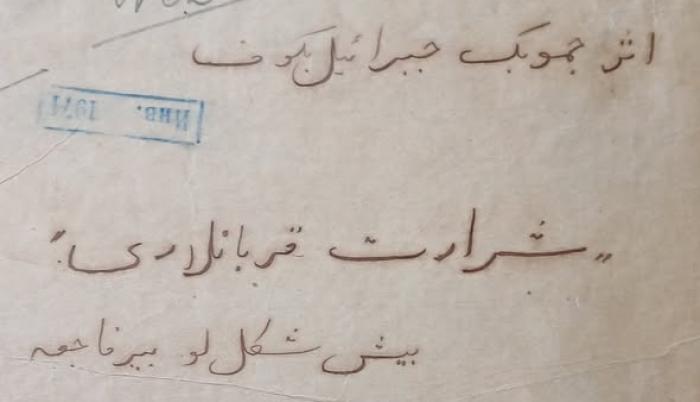 اثر جموبک جبرائیل بکوف
Инв. 1971
„شرارت قربانلاری“
بیش شکل لو بیر فاجعه